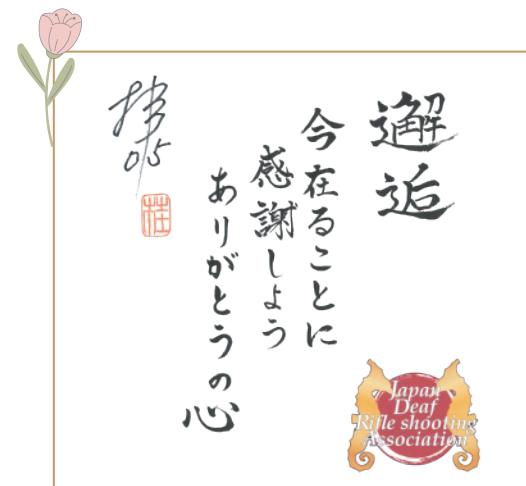 邂逅
今在ることに
感謝しよう
ありがとうの心
桂
Japan
Deaf
Rifle shooting
Association